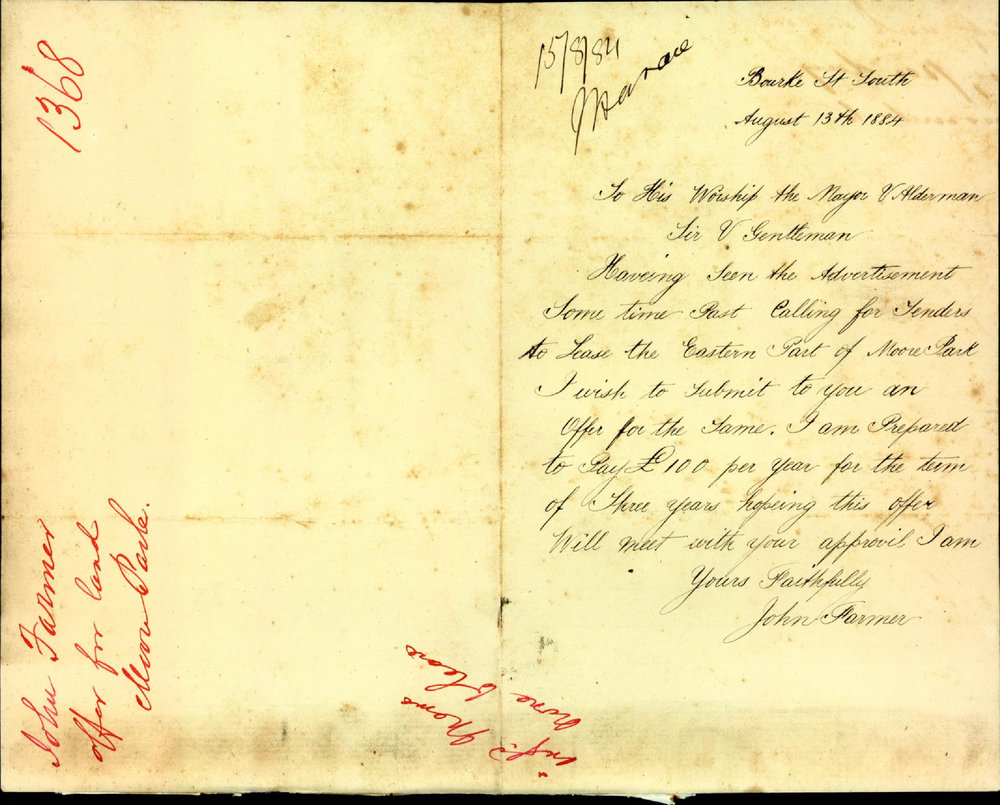 1368
John Farmer
offer for land
Moore Park.
15/8/84
Bourke St South
August 13th 1884
To His Worship the Mayor & Alderman
Sir & Gentleman
Haveing Seen the Advertisement
Some time Past Calling for Tenders
to Lease the Eastern Part of Moore Park
I wish to Submit to you an
Offer for the Same. I am Prepared
to Pay £100 per year for the term
of Three years hopeing this offer
Will meet with your approvil I am
Yours Faithfully
John Farmer